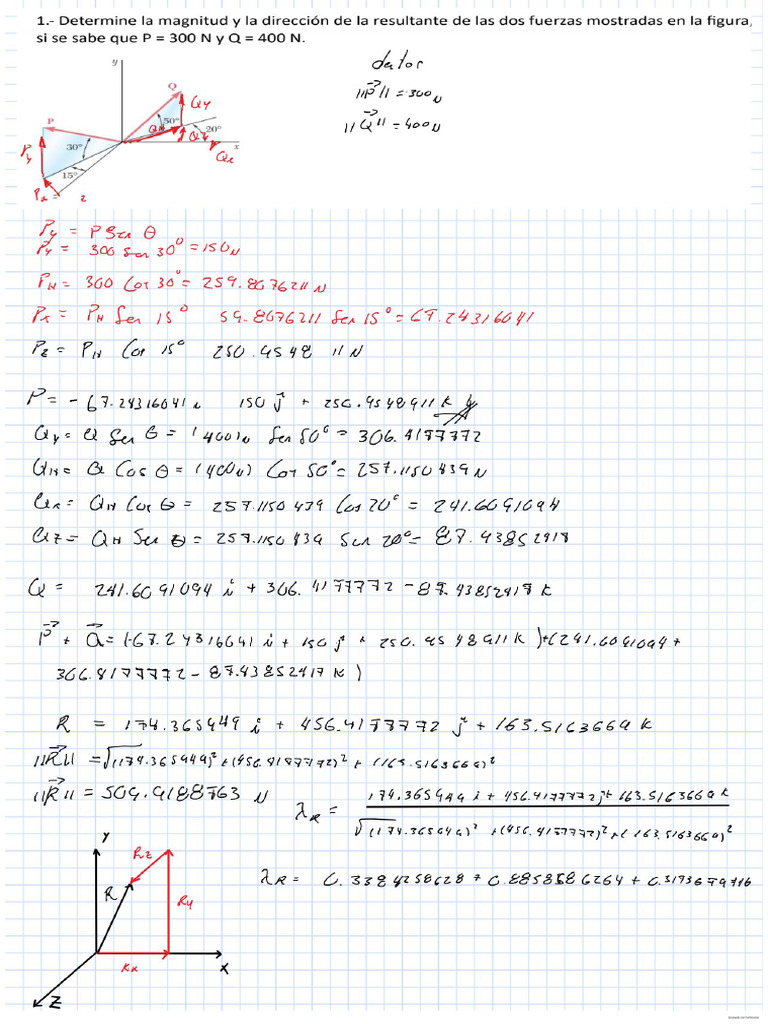 1.- Determine la magnitud y la dirección de la resultante de las dos fuerzas mostradas en la figura,
si se sabe que P = 300 N y Q = 400 N.
datos
||P⃗|| = 300 N
||Q⃗|| = 400 N
y
Q
Qy
P
50°
20°
QH
Qz
x
Qx
30°
Py
15°
Px
z
Py = P Sen θ
Py = 300 Sen 30° = 150 N
PH = 300 Cos 30° = 259.8076211 N
Px = PH Sen 15° 59.8076211 Sen 15° = 67.24316041
Pz = PH Cos 15° 250.9548 11 N
P = - 67.24316041 N 150 j + 250.9548911 k
Qy = Q Sen θ = (400)N Sen 50° = 306.4177772
QH = Q Cos θ = (400N) Cos 50° = 257.1150439 N
Qx = QH Cos θ = 257.1150439 Cos 20° = 241.6091094
Qz = QH Sen θ = 257.1150439 Sen 20° = 87.93852417
Q = 241.6091094 i + 306.4177772 - 87.93852417 k
P⃗ + Q⃗ = (-67.24316041 i + 150 j + 250.9548911 k) + (241.6091094 +
306.4177772 - 87.93852417 k)
R = 174.365949 i + 456.4177772 j + 163.5163669 k
||R⃗|| = √(174.365949)² + (456.4177772)² + (163.5163669)²
||R⃗|| = 509.9188763 N
λR = 174.365949 i + 456.4177772 j + 163.5163669 k
√(174.365949)² + (456.4177772)² + (163.5163669)²
λR = 0.3384258628 + 0.8858586264 + 0.3173679716
Y
Rz
R
Ry
Rx
X
Z